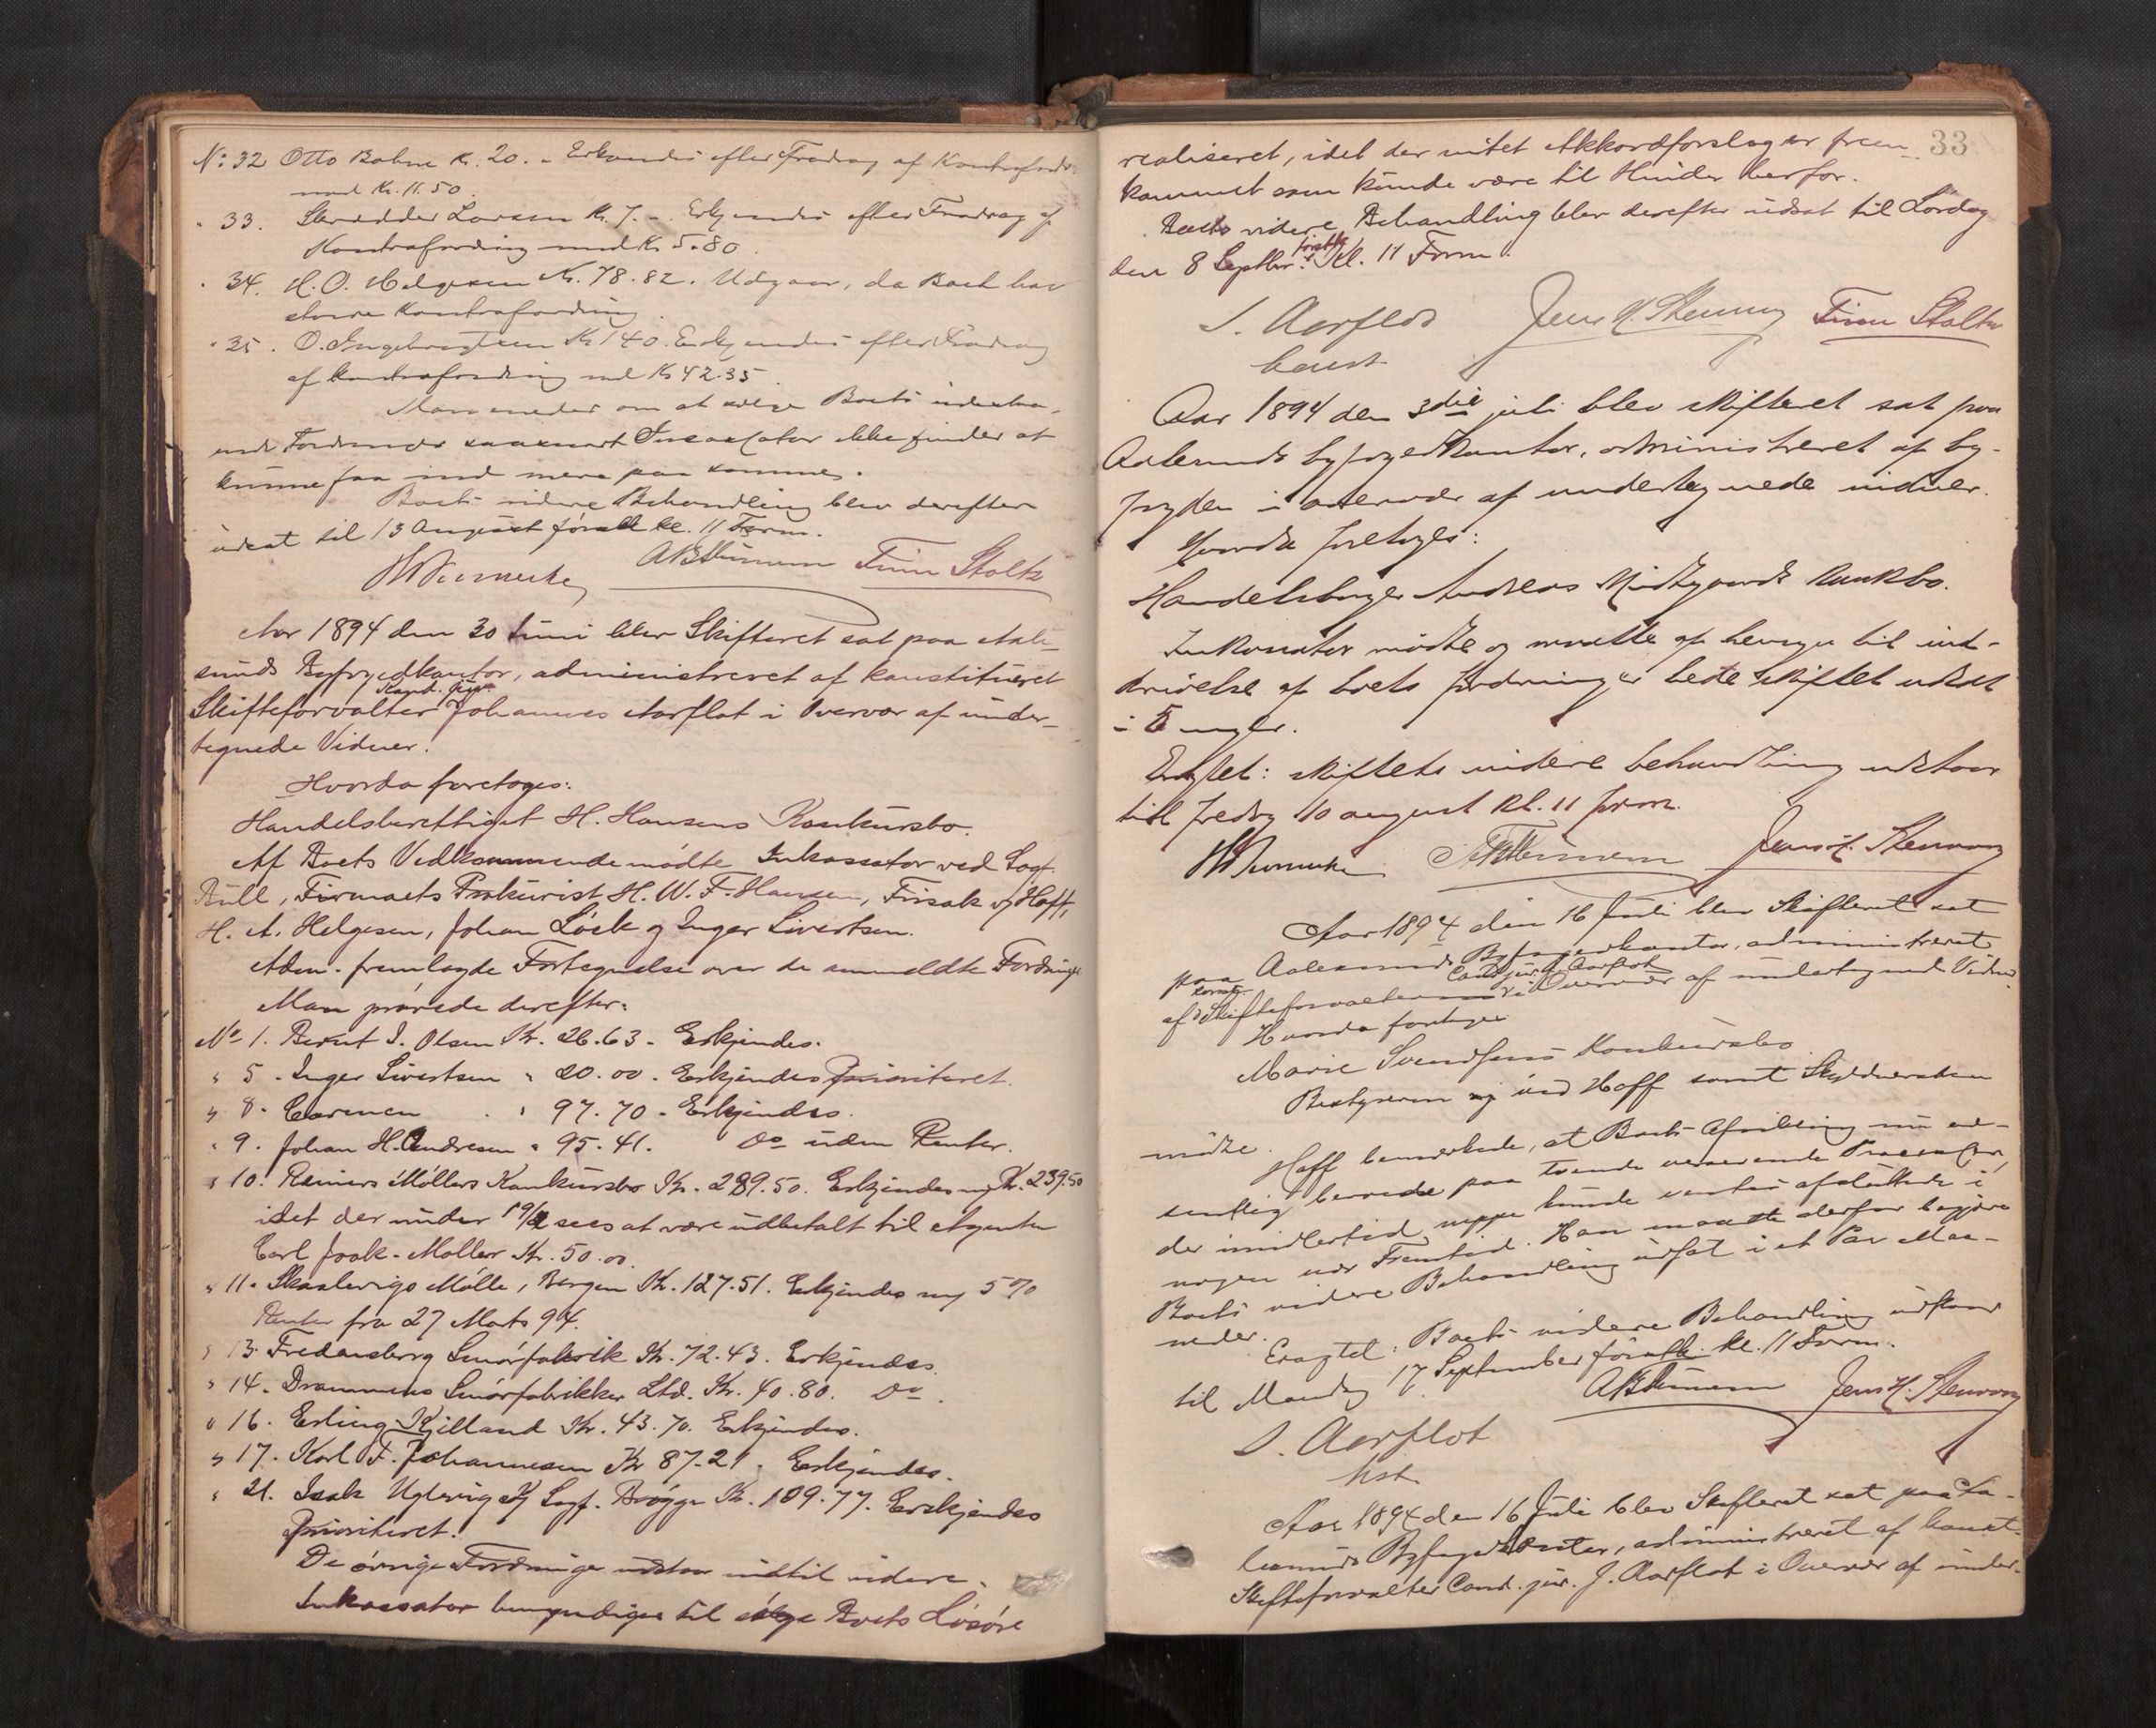 No 32 Otto Bohne Kr. 20. - Erkjendes efter Fradrag af Kontrafordr.
med Kr. 11.50.
" 33. Skrædder Larsen Kr. 7. - Erkjendes efter Fradrag af
Kontrafordring med Kr. 5.80.
" 34. H. O. Helgesen Kr. 78.82. Udgaar, da Boet har
større Kontrafordring.
" 35. O. Ingebrigtsen Kr 140. Erkjendes efter Fradrag
af Kontrafordring med Kr 42.35.
om at sælge Boets udestaa-
ende Fordringer saasnart Incassator ikke finder at
kunne faa ind mere paa samme.
Boets videre Behandling blev derefter
udsat til 13 August førstk. kl. 11 Form.
Finn Stoltz
Aar 1894 den 30 Juni blev Skifteret sat paa Aale-
sunds Byfogedkontor, administreret af konstitueret
Skifteforvalter Kand. jur. Johannes Aarflot i Overvær af under-
tegnede Vidner.
Hvorda foretoges:
Handelsberettiget H. Hansens Konkursbo.
Af Boets Vedkommende mødte Inkassator ved Sagf.
Bull, Firmaets Prokurist H. W. F. Hansen, Frisak og Hoff,
H. A. Helgesen, Johan Löck og Inger Sivertsen.
Adm. fremlagde Fortegnelse over de anmeldte Fordringer
Man prøvede derefter:
No 1. Bernt I. Olsen Kr. 26.63 - Erkjendes.
" 5. Inger Sivertsen " 20.00 - Erkjendes prioriteret.
" 8. Carmen " 97.70 - Erkjendes.
" 9. Johan H. Andresen " 95.41. Do uden Renter.
" 10. Reiners Möllers Konkursbo Kr. 289.50. Erkjendes m/ Kr. 239.50
idet der under 19/2 sees at være udbetalt til Agenten
Carl Joak. Møller Kr. 50.00.
" 11. Skaalevigs Mølle, Bergen Kr. 127.51. Erkjendes m/ 5%
Renter fra 27 Mats 94.
" 13. Fredensborg Smørfabrik Kr. 72.43. Erkjendes.
" 14. Drammens Smørfabrikker Ltd. Kr. 40.80. Do.
" 16. Erling Kjilland Kr. 43.70. Erkjendes.
" 17. Karl F. Johannesen Kr 87.21. Erkjendes.
" 21. Isak Uglevig v/ Sagf. Brøgge Kr. 109.77. Erkjendes
Prioriteret.
De øvrige Fordringer udstaar indtil videre.
Inkassator bemyndiges til sælge Boets Løsøre
33
realiseret, idet der intet Akkordforslag er frem-
kommet som kunde være til Hinder herfor.
Boets videre Behandling blev derefter udsat til Lørdag
den 8 Septbr. førstk. Kl. 11 Form.
J. Aarflot Jens H. Stenvaag Finn Stoltz
const
Aar 1894 den 3die juli blev skifteret sat paa
Aalesunds byfogedkontor, administreret af by-
fogden i overvær af undertegnede vidner.
Hvorda foretoges:
Handelsborger Andreas Midtgaards konkbo.
Inkassator mødte og maatte af hensyn til ind-
drivelse af boets fordringer bede skiftet udsat
i 5 uger.
Eragtet: skiftets videre behandling udstaar
til fredag 10 august kl. 11 form.
Jens H. Stenvaag
Aar 1894 den 16 Juli blev Skifteret sat
paa Aalesunds Byfogedkontor, administreret
af konst. Skifteforvalter Cand. jur. J. Aarflot i Overvær af undertegnede Vidner.
Hvorda foretoges
Marie Svendsens Konkursbo
Bestyreren ved Hoff samt Skyldnersken
mødte.
Hoff bemærkede, at Boets Afvikling nu ude-
lukkende beroede paa tvende verserende Processer,
der imidlertid neppe kunde ventes afsluttede i
nogen nær Fremtid. Han maatte derfor begjære
Boets videre Behandling udsat i et Par Maa-
neder.
Eragtet: Boets videre Behandling udstaar
til Mandag 17 September førstk. kl. 11 Form.
Jens H. Stenvaag
J. Aarflot
kst.
Aar 1894 den 16 Juli blev Skifteret sat paa Aa-
lesunds Byfogedkontor, administreret af konst.
Skifteforvalter Cand. jur. J. Aarflot i Overvær af under-